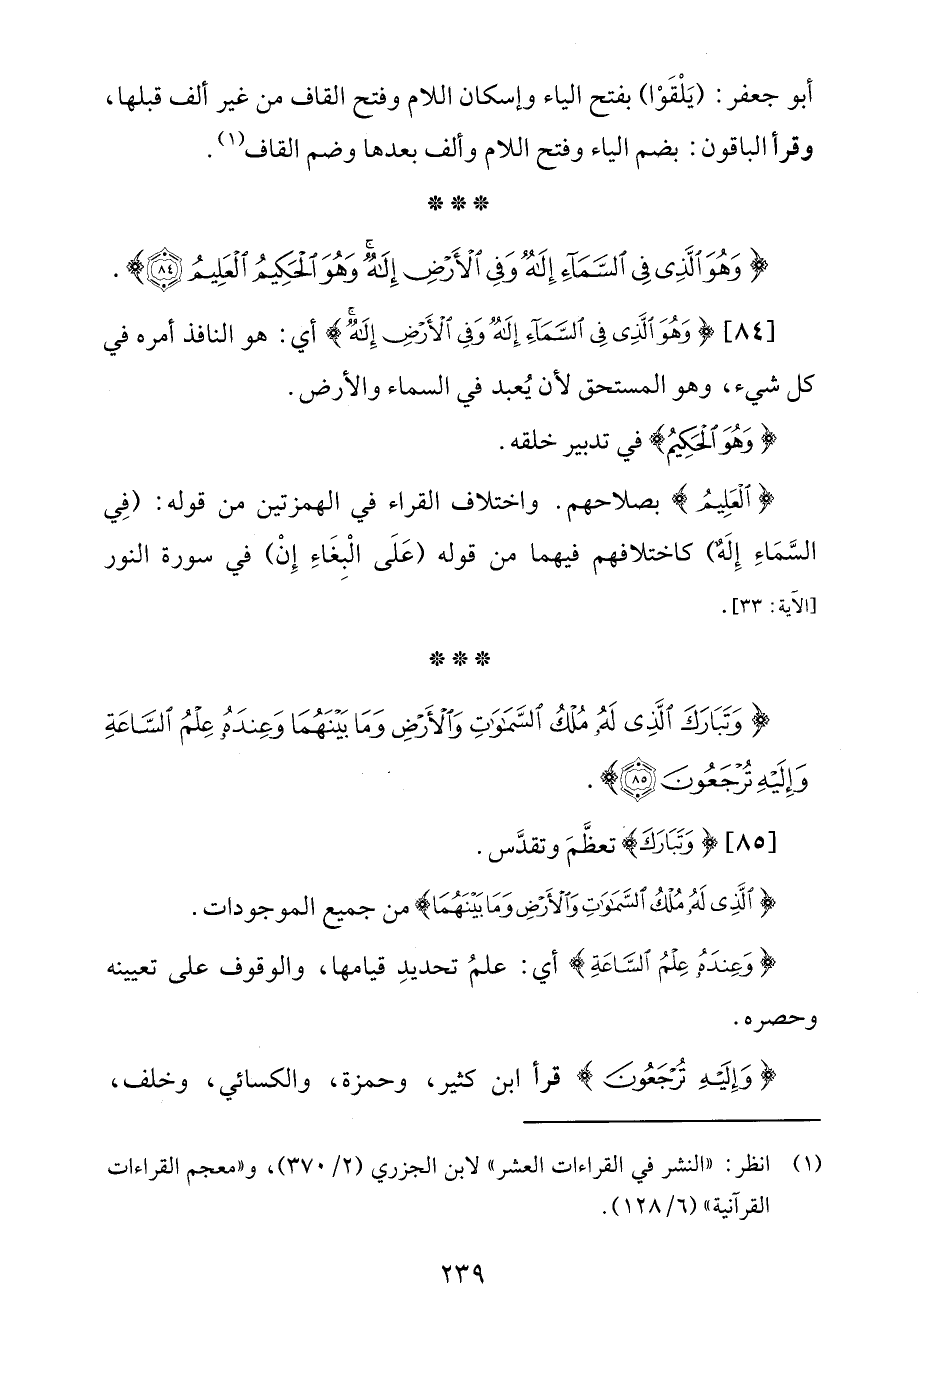 أبو جعفر: (يَلْقَوْا) بفتح الياء وإسكان اللام وفتح القاف من غير ألف قبلها،
وقرأ الباقون: بضم الياء وفتح اللام وألف بعدها وضم القاف(١).
* * *
﴿ وَهُوَ ٱلَّذِى فِى ٱلسَّمَآءِ إِلَٰهٌ وَفِى ٱلْأَرْضِ إِلَٰهٌ ۚ وَهُوَ ٱلْحَكِيمُ ٱلْعَلِيمُ ٨٤ ﴾.
[٨٤] ﴿ وَهُوَ ٱلَّذِى فِى ٱلسَّمَآءِ إِلَٰهٌ وَفِى ٱلْأَرْضِ إِلَٰهٌ ۚ ﴾ أي: هو النافذ أمره في
كل شيء، وهو المستحق لأن يُعبد في السماء والأرض.
﴿ وَهُوَ ٱلْحَكِيمُ ﴾ في تدبير خلقه.
﴿ ٱلْعَلِيمُ ﴾ بصلاحهم. واختلاف القراء في الهمزتين من قوله: (فِي
السَّمَاءِ إِلَهٌ) كاختلافهم فيهما من قوله (عَلَى الْبِغَاءِ إِنْ) في سورة النور
[الآية: ٣٣].
* * *
﴿ وَتَبَارَكَ ٱلَّذِى لَهُۥ مُلْكُ ٱلسَّمَٰوَٰتِ وَٱلْأَرْضِ وَمَا بَيْنَهُمَا وَعِندَهُۥ عِلْمُ ٱلسَّاعَةِ
وَإِلَيْهِ تُرْجَعُونَ ٨٥ ﴾.
[٨٥] ﴿ وَتَبَارَكَ ﴾ تعظَّمَ وتقدَّس.
﴿ ٱلَّذِى لَهُۥ مُلْكُ ٱلسَّمَٰوَٰتِ وَٱلْأَرْضِ وَمَا بَيْنَهُمَا ﴾ من جميع الموجودات.
﴿ وَعِندَهُۥ عِلْمُ ٱلسَّاعَةِ ﴾ أي: علمُ تحديدِ قيامها، والوقوف على تعيينه
وحصره.
﴿ وَإِلَيْهِ تُرْجَعُونَ ﴾ قرأ ابن كثير، وحمزة، والكسائي، وخلف،
(١) انظر: «النشر في القراءات العشر» لابن الجزري (٢/ ٣٧٠)، و«معجم القراءات
القرآنية» (٦/ ١٢٨).
٢٣٩